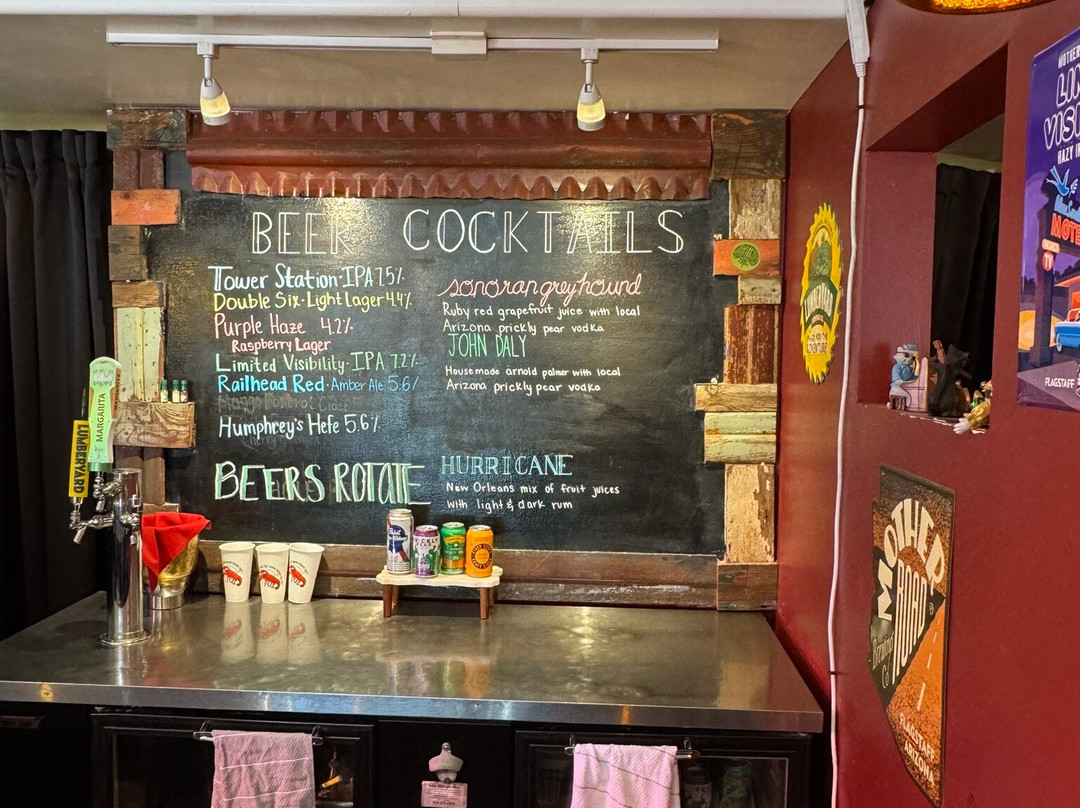 BEER
Tower Station·IPA 7.5%
Double Six·Light Lager 4.4%
Purple Haze 4.2%
Raspberry Lager
Limited Visibility·IPA 7.2%
Railhead Red·Amber Ale 5.6%
Humphrey's Hefe 5.6%
BEERS ROTATE
COCKTAILS
sonoran greyhound
Ruby red grapefruit juice with local
Arizona prickly pear vodka
JOHN DALY
Housemade arnold palmer with local
Arizona prickly pear vodka
HURRICANE
New Orleans mix of fruit juices
with light & dark rum
LUMBERYARD
MARGARITA
LUMBERYARD
MOTHER
ROAD
Brewing
FLAGSTAFF
ARIZONA
MOTHER
LIM
VISI
HAZY I
MOTE
TV
FLAGSTAFF